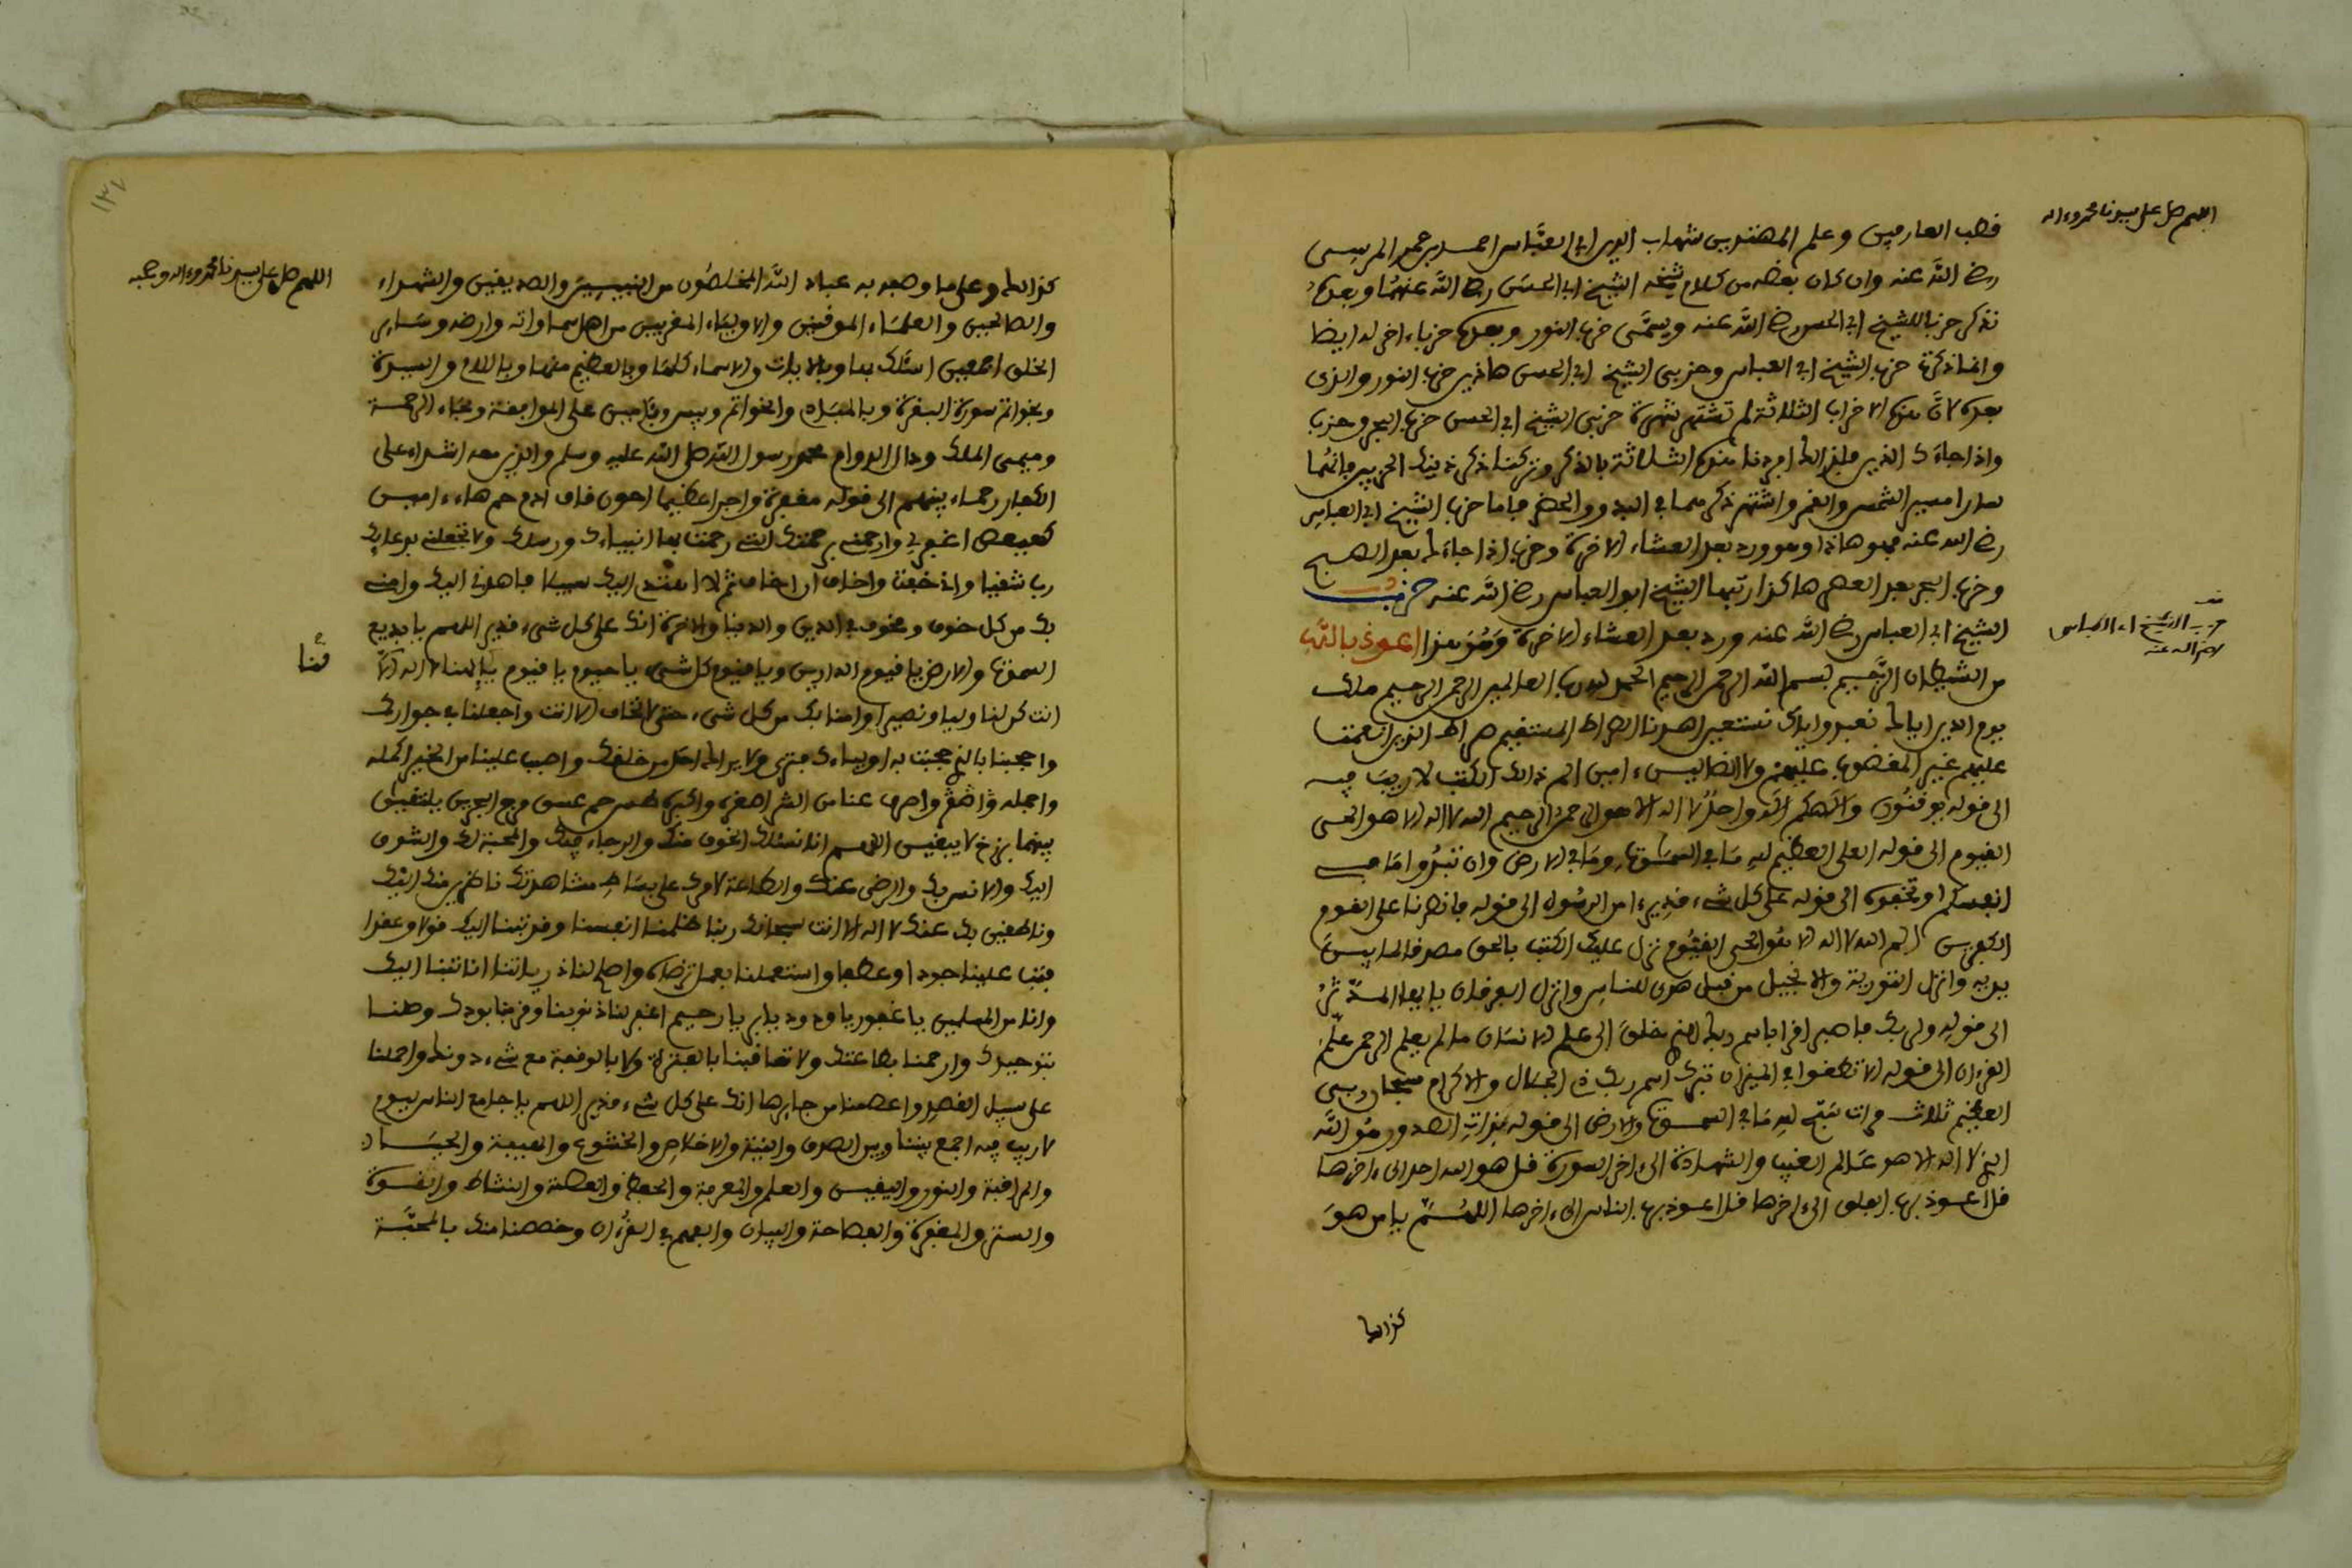 اللهم صل على سيدنا محمد وءاله
قطب العارفين وعلم المهتدين شهاب الدين ابي العبَّاس احمد بن عمر المرسى
رضي اللَّه عنه وان كان بعضه من كلام شيخه الشيخ ابي الحسَن رضي اللَّه عنهمُا وبعده
نذكر حزبا للشيخ ابي الحسن رضي اللَّه عنه ويسمَّى حزب النور وبعده حزباء اخر له ايضا
وانما ذكرتُ حزب الشيخ ابي العباس وحزبى الشيخ ابي الحسن هاذين حزب النور والذى
بعده لانَّ هذه الاحزاب الثلاثة لم تشتهر شهرة حزبى الشيخ ابي الحسن حزب البحر وحزب
واذا جاءَك الذين فلذالك افردنا هذه الثلاثة بالذكر وتركنا ذكر ذينك الحزبين فانهُما
سارا مسير الشمس والقمر واشتهر ذكرهما في البدو والحضر فاما حزب الشيخ ابي العباس
رضي الله عنه فهو هاذا وهو ورد بعد العشاء الاخرة وحزب اذا جاءَك بعد الصبح
وحزب البحر بعد العصر هاكذا رتبها الشيخ ابو العباس رضي اللَّه عنه حزب
الشيخ ابي العباس رضي اللَّه عنه ورد بعد العشاء الاخرة وَهُوَ هذا اعوذ باللَّه
حزب الشيخ ابي العباس
رضي الله عنه
من الشيطان الرَّجيم بسم اللَّه الرحمن الرحيم الحمد لله رب العالمين الرحمن الرحيم ملك
يوم الدين اياك نعبد واياك نستعين اهدنا الصراط المستقيم صراط الذين انعمت
عليهم غير المغضوب عليهم ولا الضالين ءامين الم ذالك الكتب لا ريبَ فيه
الى قوله يوقنُون وَالَهكم الَه واحدٌ لا اله الا هو الرحمن الرحيم الله لا اله الا هو الحى
القيوم الى قوله العلى العظيم للهِ مَا في السمَوتِ ومَا في الارض وان تبدُوا مَا في
انفسكم او تخفوه الى قوله على كل شيء قدير ءامن الرسُول الى قوله فانصرنا على القوم
الكفرين الم الله لا اله الا هُو الحى القيُّوم نزل عليك الكتب بالحق مصدقا لما بين
يديه وانزل التورية والانجيل من قبل هدى للناس وانزل الفرقان يايها المدّثرُ
الى قوله ولربك فاصبر اقرا باسم ربك الذي خلقَ الى علم الانسَان ما لم يعلم الرحمن علّم
القرءان الى قوله الا تطغوا في الميزان تبرك اسم ربك ذي الجلال والاكرام سبحان ربى
العظيم ثلاث مرات سَبّح للهِ مَا في السموت والارض الى قوله بذاتِ الصدور هُو اللَّه
الذي لا اله الا هو عَالم الغيب والشهادة الى ءاخر السورة قل هو الله احد الى ءاخرها
قل اعوذ برب الفلق الى ءاخرها قل اعوذ برب الناس الى ءاخرها اللهُمَّ يا من هوَ
كذالك
١٣٧
اللهم صل على سيدنا محمد وءاله وصحبه
كذالك وعلى ما وصفه به عباد اللَّه المخلصُون من النبيين والصديقين والشهداء
والصالحين والعلمَاء الموقنين والاوليَاء المقربين من اهل سماواته وارضه وسَاير
الخلق اجمعين اسئلك بها وبالايات والاسماء كلها وبالعظيم منها وبالام والسيدة
وبخواتم سورة البقرة وبالمبادِ والخواتم وبيس وبئامين على الموافقة وبحَاء الرحمة
وميمى الملك ودال الدوام محمد رسول اللَّه صلى اللَّه عليه وسلم والذين معه اشداء على
الكفار رحماء بينهم الى قوله مغفرة واجرا عظيما احون قاف ادم حم هاء ءامين
كهيعص اغفر لي وارحمني برحمتك التي رحمت بها انبياءك ورسلك ولا تجعلني بدعايك
رب شقيا واني خفت واخاف ان اخاف ثم لا اهتدى اليك سبيلا فاهدني اليك وامني
بك من كل خوف ومخوف في الدين والدنيا والاخرة انك على كل شيء قدير اللهم يا بديع
السموت والارض يا قيوم الدارين ويا قيوم كل شيء يا حيوم يا قيوم يا إلهنا لا اله الا
انت كن لنا وليا ونصيرا وامنا بك من كل شيء حتى لا نخاف الا انت واجعلنا في جوارك
واحجبنا بالذي حجبت به اولياءك فترى ولا يراك احد من خلقك واصبب علينا من الخير اكمله
واجمله واصرف عنا من الشر اصغره واكبره طس حم عسق مرج البحرين يلتقيان
بينهما برزخ لا يبغيان اللهم انا نسئلك الخوف منك والرجاء فيك والمحبة لك والشوق
اليك والانس بك والرضى عنك والطاعة لامرك على بسَاط مشاهدتك ناظرين منك اليك
وناطقين بك عنك لا اله الا انت سبحانك ربنا ظلمنا انفسنا وقد تبنا اليك قولا وعقدا
فتب علينا جودا وعطفا واستعملنا بعمل ترضاه واصلح لنا ذرياتنا انا تبنا اليك
وانا من المسلمين يا غفور يا ودود يا بر يا رحيم اغفر لنا ذنوبنا وقربنا بودك وصلنا
بتوحيدك وارحمنا بطاعتك ولا تعاقبنا بالفترة ولا بالوقفة مع شيء دونك واحملنا
على سبيل القصد واعصمنا من جايرها انك على كل شيء قدير اللهم يا جامع الناس ليوم
لا ريب فيه اجمع بيننا وبين الصدق والنية والاخلاص والخشوع والهيبة والحيَاء
والمراقبة والنور واليقين والعلم والمعرفة والحفظ والعصمة والنشاط والقوة
والستر والمغفرة والفصاحة والبيان والفهم في القرءان وخصصنا منك بالمحبَّة